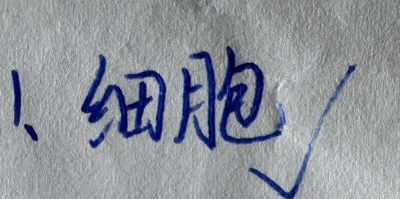 1、细胞✓